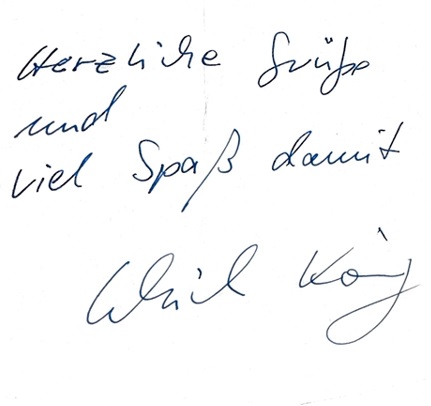 Herzliche Grüße
und
viel Spaß damit
Ulrich König